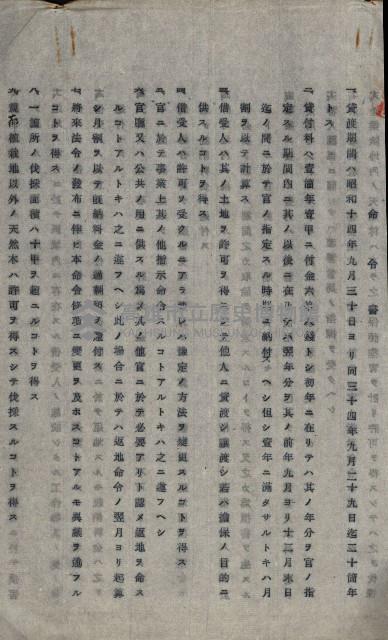 命令書
一、貸渡期間ハ昭和十四年九月三十日ヨリ同三十四年九月二十九日迄二十箇年
トス
二、貸付料ハ壹箇年壹甲ニ付金六
錢トシ初年ニ在リテハ其ノ年分ヲ官ノ指
定スル期間内ニ其ノ以後ニ在リテハ翌年分ヲ其ノ前年九月ヨリ十二月末日
迄ノ間ニ於テ官ノ指定スル時期ニ納付スヘシ但シ壹年ニ滿タサルトキハ月
割ヲ以テ計算ス
三、借受人ハ其ノ土地ヲ許可ヲ得スシテ他人ニ貸渡シ讓渡シ若ハ擔保ノ目的ニ
供スルコトヲ得ス
四、借受人ハ許可ヲ受クルニアラサレハ豫定ノ方法ヲ變更スルコトヲ得ス
五、官ニ於テ事業上其ノ他指示命令スルコトアルトキハ之ニ遵フヘシ
六、官廳又ハ公共ノ用ニ供スル爲其ノ他官ニ於テ必要アリト認メ返地ヲ命ス
ルコトアルトキハ之ニ遵フヘシ此ノ場合ニ於テハ返地命令ノ翌月ヨリ起算
シ月額ヲ以テ既納料金ノ過剩額ヲ還付ス
七、將來法令ノ發布ニ伴ヒ本命令條項ニ變更ヲ及ホスコトアルモ異議ヲ逋フル
コトヲ得ス
八、一箇所ノ伐採面積ハ十甲ヲ超ユルコトヲ得ス
九、
植栽地以外ノ天然木ハ許可ヲ得スシテ伐採スルコトヲ得ス
高雄市立歷史博物館
KAOHSIUNG MUSEUM OF HISTORY